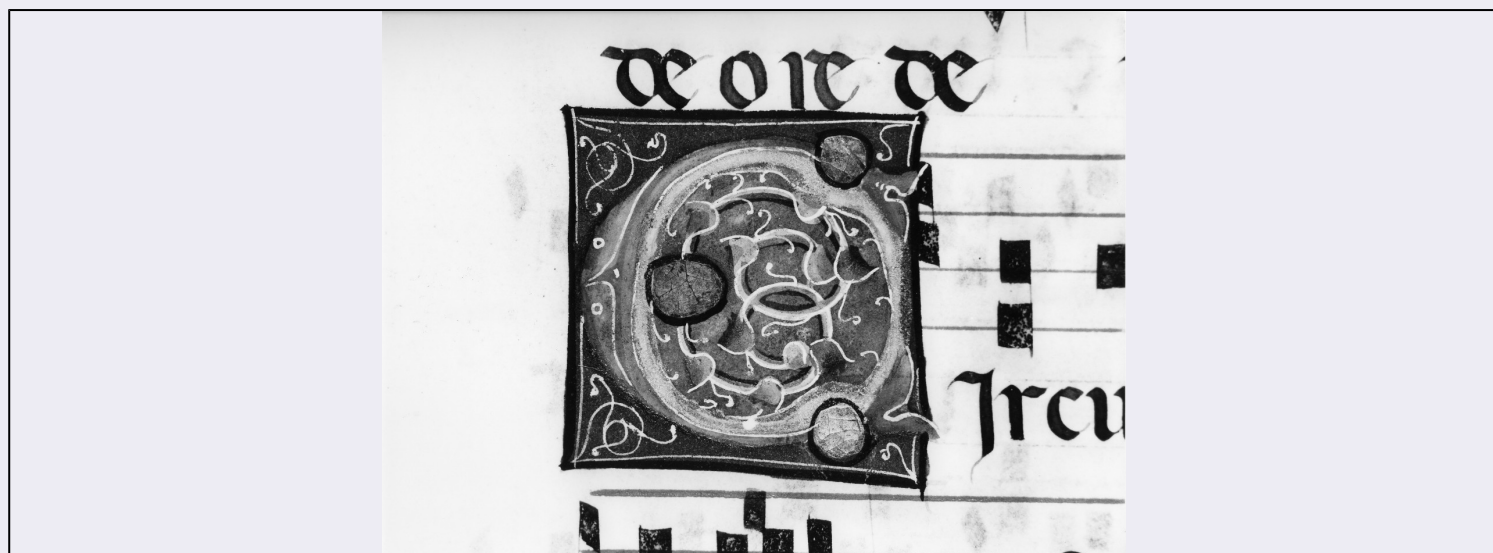 de o re de
CIrcu